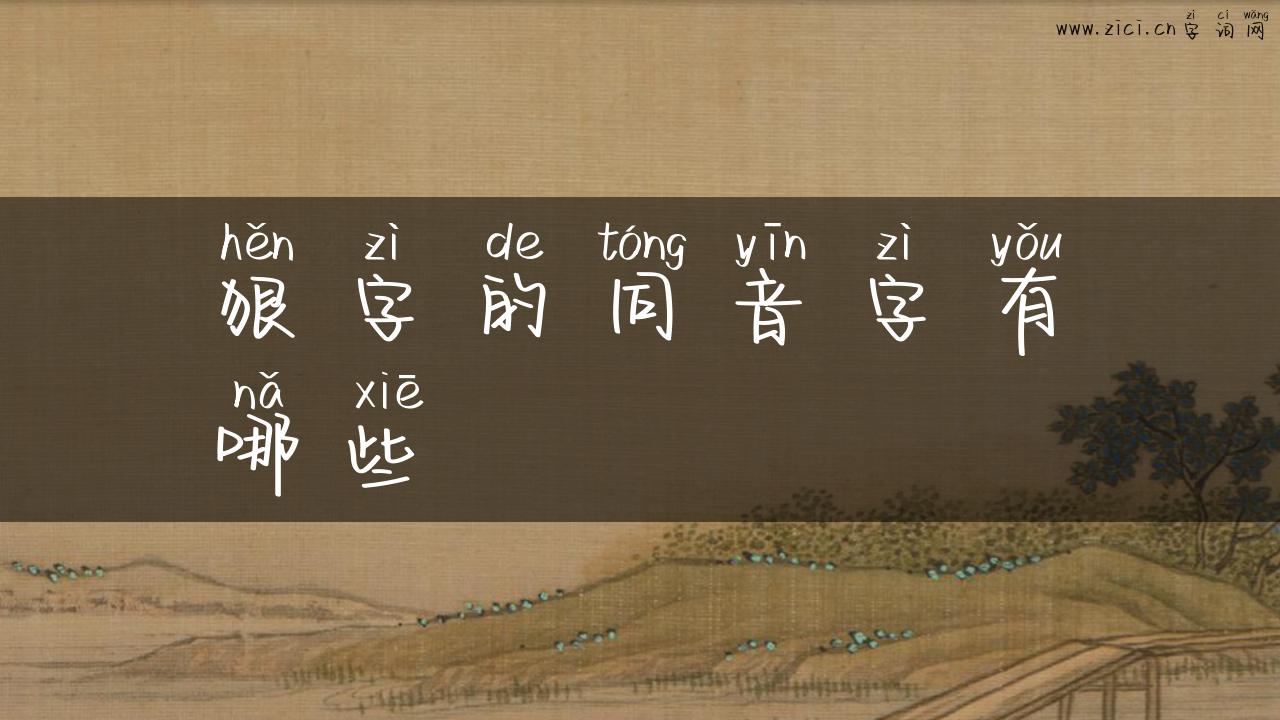 zì cí wǎng
www.zici.cn 字词网
hěn zì de tóng yīn zì yǒu
狠字的同音字有
nǎ xiē
哪些